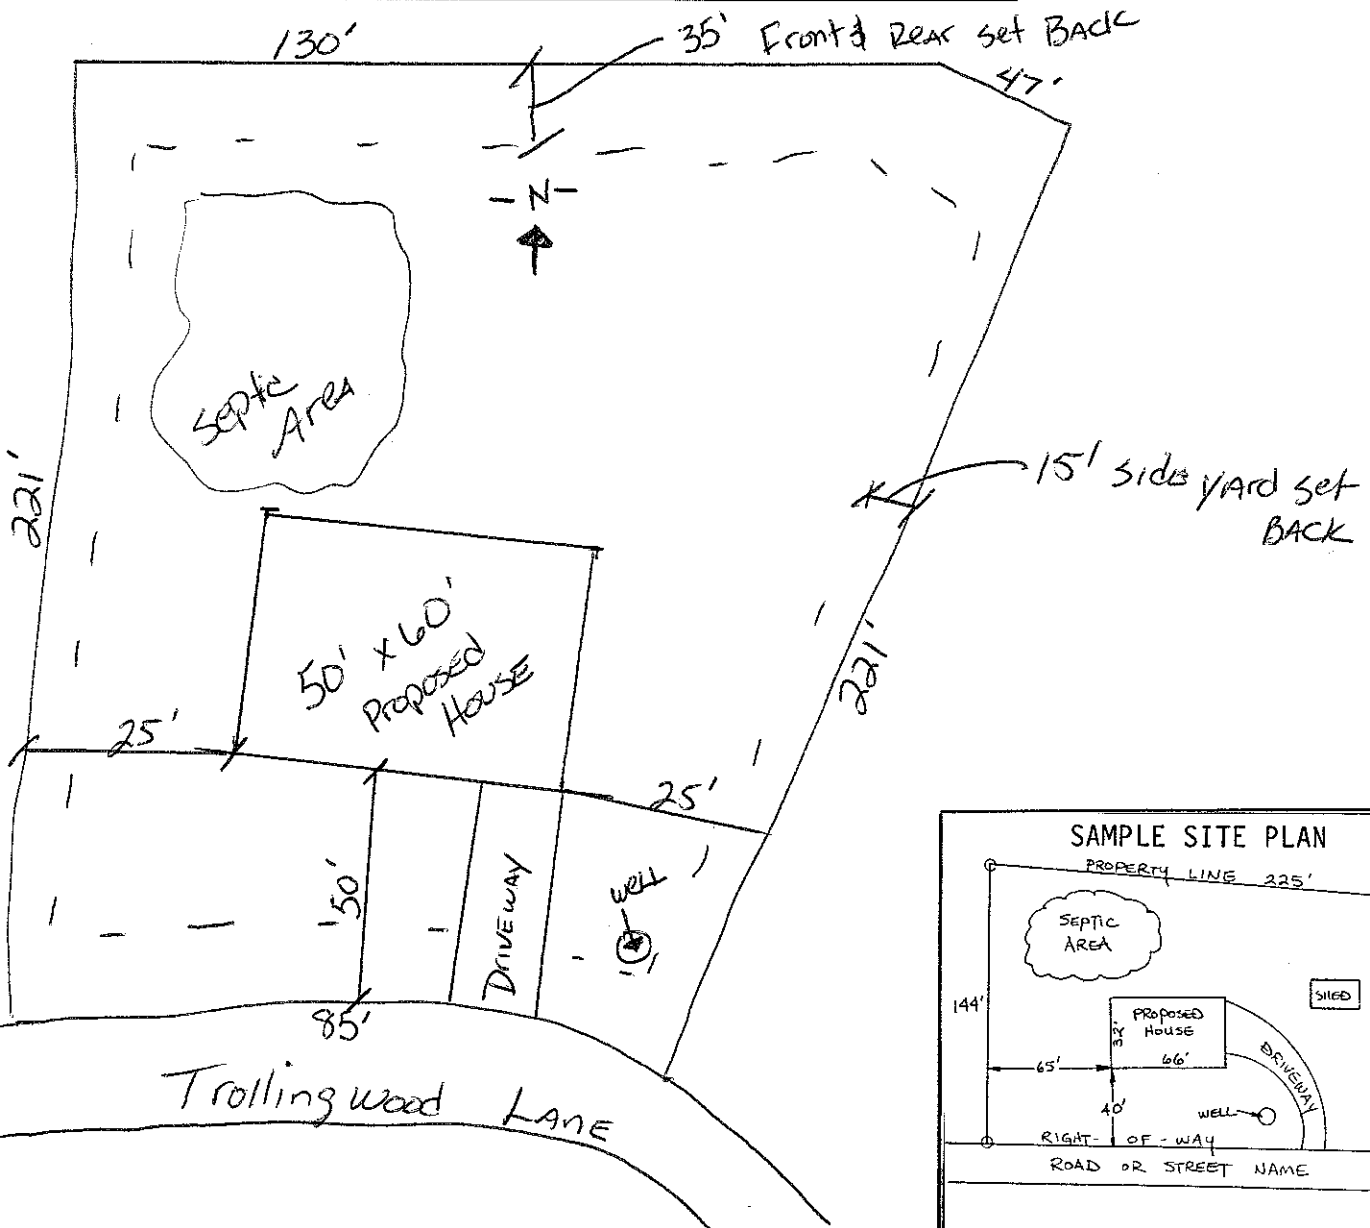 130'
35' Front & Rear set BACK
47'
- N -
Septic
Area
221'
15' side yard set
BACK
50' x 60'
Proposed
House
221'
25'
25'
50'
DRIVEWAY
well
85'
Trollingwood LANE
SAMPLE SITE PLAN
PROPERTY LINE 225'
SEPTIC
AREA
SHED
144'
PROPOSED
HOUSE
32'
66'
65'
DRIVEWAY
40'
WELL
RIGHT - OF - WAY
ROAD OR STREET NAME